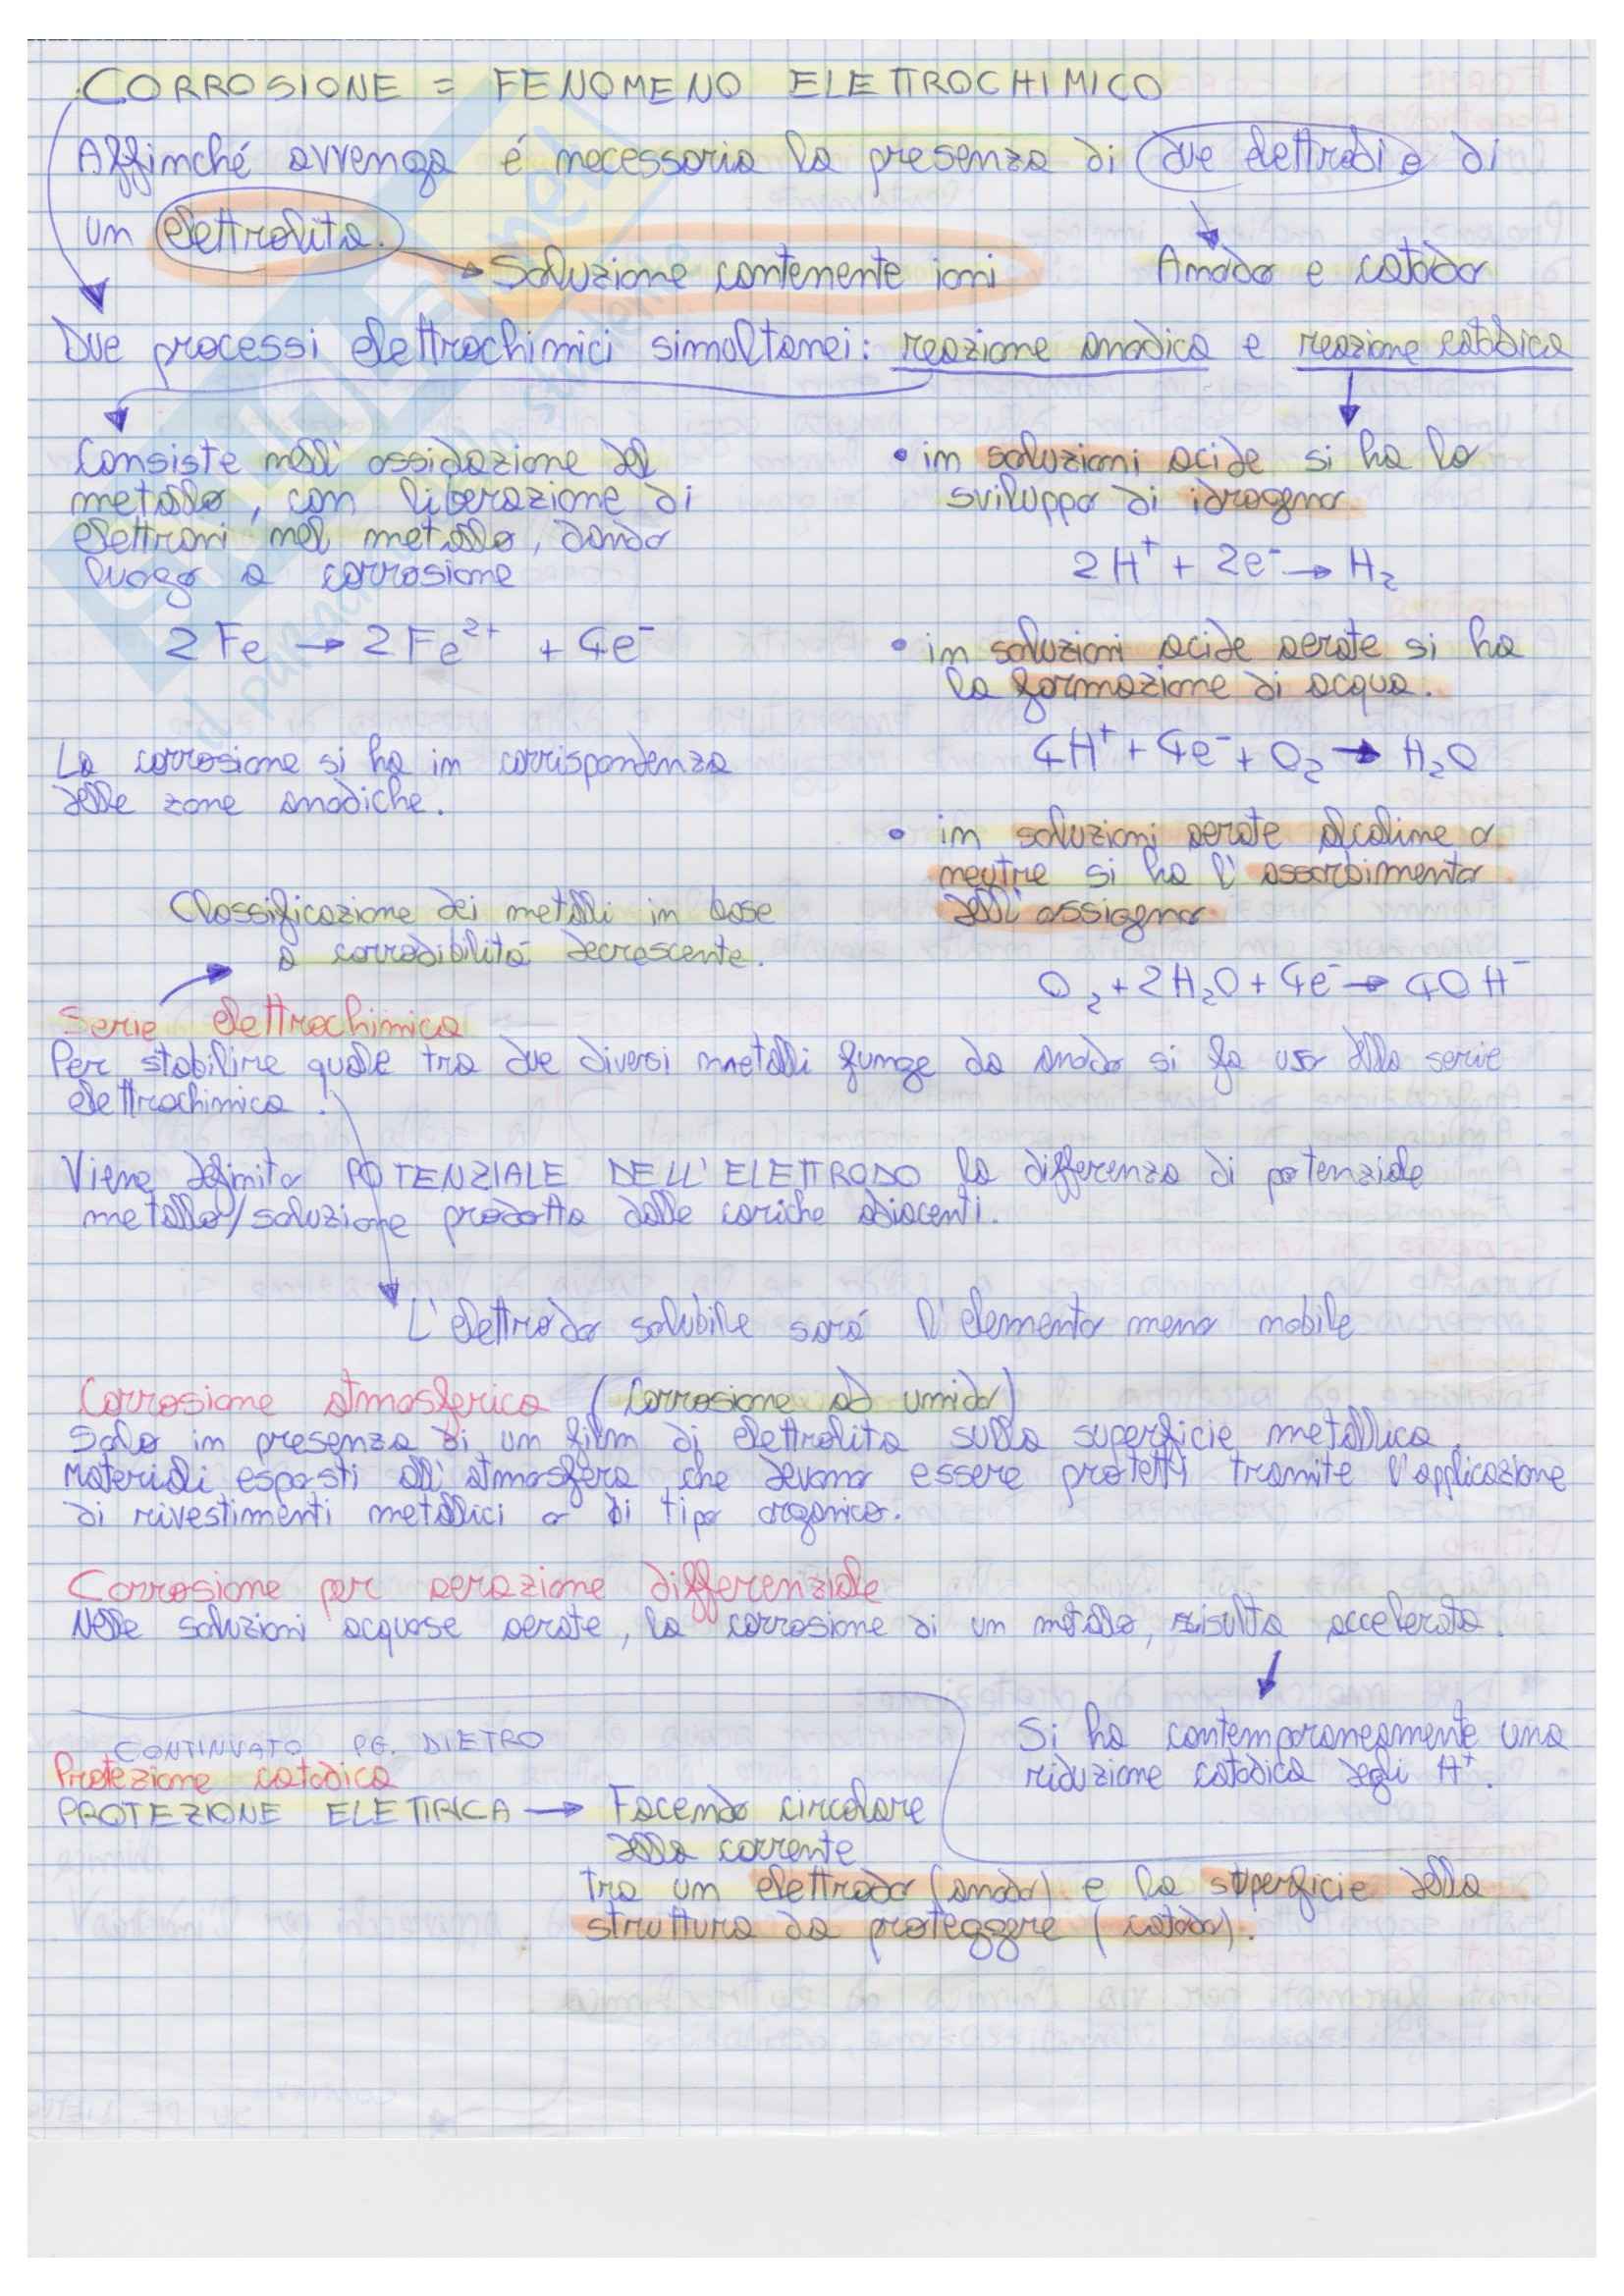 CORROSIONE = FENOMENO ELETTROCHIMICO
Affinché avvenga é necessaria la presenza di due elettrodi e di
un elettrolita.
Soluzione contenente ioni
Anodo e catodo
Due processi elettrochimici simultanei: reazione anodica e reazione catodica
Consiste nell' ossidazione del
metallo, con liberazione di
elettroni nel metallo, dando
luogo a corrosione
2 Fe → 2 Fe²⁺ + 4e⁻
La corrosione si ha in corrispondenza
delle zone anodiche.
• in soluzioni acide si ha lo
sviluppo di idrogeno.
2H⁺ + 2e⁻ → H₂
• in soluzioni acide aerate si ha
la formazione di acqua.
4H⁺ + 4e⁻ + O₂ → H₂O
• in soluzioni aerate alcaline o
neutre si ha l' assorbimento
dell'ossigeno
O₂ + 2H₂O + 4e⁻ → 4OH⁻
Classificazione dei metalli in base
a corrodibilità decrescente.
Serie elettrochimica
Per stabilire quale tra due diversi metalli funge da anodo si fa uso della serie
elettrochimica.
Viene definito POTENZIALE DELL'ELETTRODO la differenza di potenziale
metallo/soluzione prodotta dalle cariche adiacenti.
L'elettrodo solubile sarà l'elemento meno nobile
Corrosione atmosferica (Corrosione ad umido)
Solo in presenza di un film di elettrolita sulla superficie metallica.
Materiali esposti all'atmosfera che devono essere protetti tramite l'applicazione
di rivestimenti metallici o di tipo organico.
Corrosione per aerazione differenziale
Nelle soluzioni acquose aerate, la corrosione di un metallo, risulta accelerata.
Si ha contemporaneamente una
riduzione catodica degli H⁺.
CONTINUATO PG. DIETRO
Protezione catodica
PROTEZIONE ELETTRICA → Facendo circolare
della corrente
tra un elettrodo (anodo) e la superficie della
struttura da proteggere (catodo).